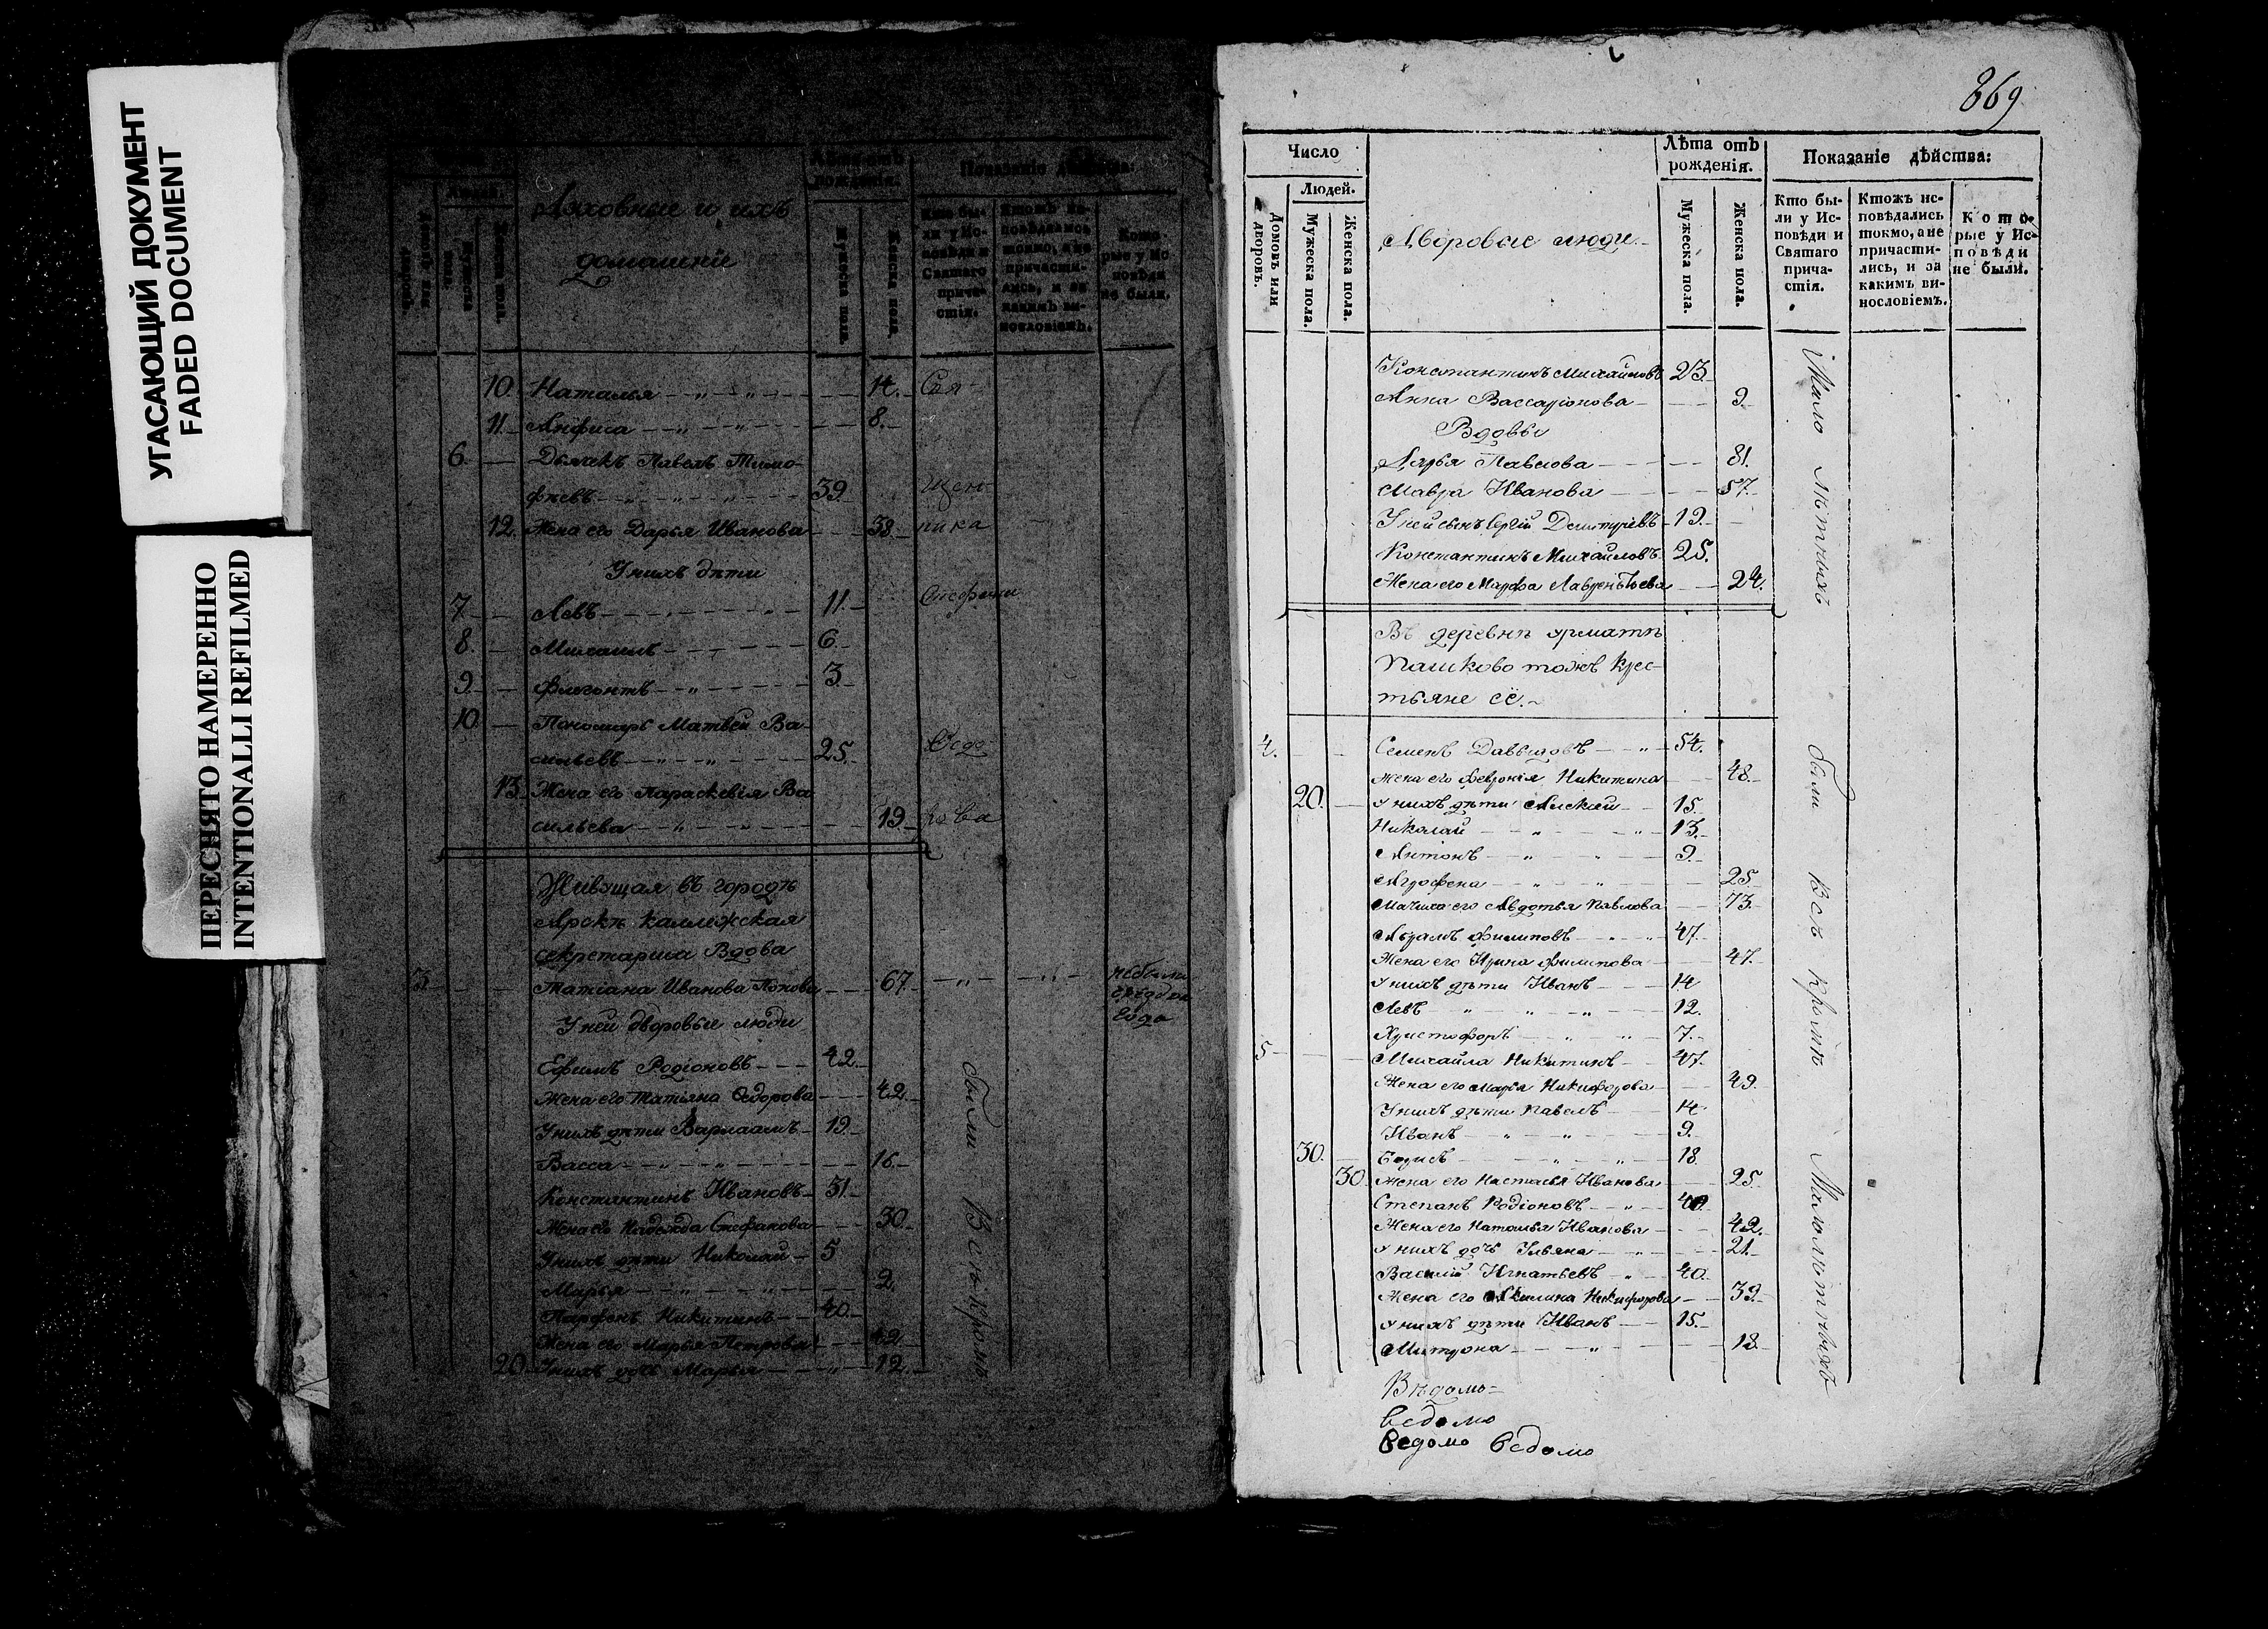 УГАСАЮЩИЙ ДОКУМЕНТ
FADED DOCUMENT
ПЕРЕСНЯТО НАМЕРЕННО
INTENTIONALLI REFILMED
Духовные и ихъ
домашніи
Показаніе дѣйства:
10. Наталья — „ — „ — 14. Свя-
11. Анфиса — „ — „ — 8.
6. Дьячекъ Павелъ Тимо-
феевъ — „ — „ — „ — 39 щен
12. Жена его Дарья Иванова — 38. ника
У нихъ дѣти
7. Левъ — „ — „ — 11. Стефани
8. Михаилъ — 6.
9. Флегонтъ — „ — 3.
10 Пономарь Матвей Ва-
сильевъ — „ — „ — 25. Ѳедо
13. Жена его Параскевія Ва
сильева — „ — „ — 19 рова
Живущая въ городѣ
Арскѣ каллежская
секретарша Вдова
3. Татіана Иванова Попова — 67 — „ — „ — небыла
года
У ней дворовые люди
Ефимъ Родіоновъ — 42
Жена его Татьяна Ѳедорова — 42.
У нихъ дѣти Варлаамъ — 19
Васса — „ — „ — 16.
Константинъ Ивановъ — 31
Жена его Надежда Стефанова — 30.
У нихъ дѣти Николай — 5
Марья — „ — „ — 2.
Парфенъ Никитинъ — 40
Жена его Марья Петрова — 42
20. У нихъ дочь Марья — „ — 12.
были Всѣ кромѣ
869
Число
Людей.
Домовъ или дворовъ.
Мужеска пола.
Женска пола.
Дворовые люди
Лѣта отъ
рожденія.
Мужеска пола.
Женска пола.
Показаніе дѣйства:
Кто бы-
ли у Ис-
повѣди и
Святаго
прича-
стія.
Ктожъ ис-
повѣдались
токмо, а не
причасти-
лись, и за
какимъ ви-
нословіемъ.
Кото-
рые у Ис-
повѣди
не были.
Константинъ Михайловъ 23
Анна Вассаріонова — 9
Вдовы
Дарья Павлова — 81.
Мавра Иванова — 57.
У ней сынъ Сергій Дмитріевъ — 19.
Константинъ Михайловъ 25.
Жена его Марфа Лаврентьева — 24.
Въ деревнѣ
Пашково тожъ крес-
тьяне её.
4. Семенъ Давыдовъ — „ — 54.
Жена его Февронія Никитина — 48.
20. У нихъ дѣти Алексей — 15.
Николай — „ — „ — 13.
Антонъ — „ — „ — 9.
Агрофена — „ — „ — 25
Мачиха его Авдотья Павлова — 73.
Абрамъ Филиповъ — „ — „ 47.
Жена его Ирина Филипова — 47.
У нихъ дѣти Иванъ — 14
Левъ — „ — „ — „ — 12.
Христофоръ — „ — „ — 7.
5 Михайла Никитинъ — 47.
Жена его Марфа Никифорова — 49.
У нихъ дѣти Павелъ — 14
Иванъ — „ — „ — 9.
30. Борисъ — „ — „ — 18
30 Жена его Настасья Иванова — 25
Степанъ Родіоновъ — „ — 40
Жена его Наталья Иванова — 42.
У нихъ дочь Ульяна — „ — 21.
Василій Игнатьевъ — „ — 40
Жена его Акилина Никифорова — 39.
У нихъ дѣти Иванъ — 15.
Митрона — „ — 18
были Всѣ кромѣ Малолѣтныхъ
Вѣдомо-
ведомо
ведомо ведомо